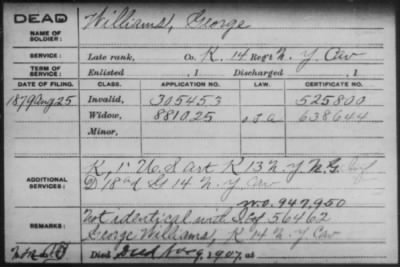 DEAD
NAME OF SOLDIER:
Williams, George
SERVICE:
Late rank, Co. K. 14 Reg't N. Y. Cav
TERM OF SERVICE:
Enlisted , 1 Discharged , 1
DATE OF FILING. CLASS. APPLICATION NO. LAW. CERTIFICATE NO.
1879 Aug 25 Invalid, 305453 525800
Widow, 881025 638644
Minor,
ADDITIONAL SERVICES:
K, 1" U S art K 13 N. Y. N. G. Inf
D 18" & 14 N. Y Cav
W.O. 947,950
REMARKS:
Not identical with 56462
George Williams, K 14 N. Y Cav
Died Nov 9, 1907, at